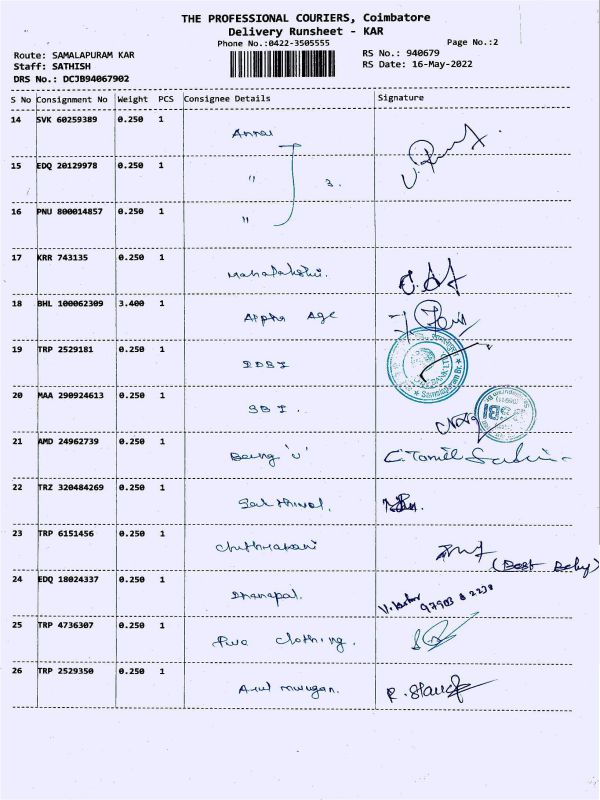 THE PROFESSIONAL COURIERS, Coimbatore
Delivery Runsheet - KAR
Phone No.:0422-3505555
Page No.:2
Route: SAMALAPURAM KAR
RS No.: 940679
Staff: SATHISH
RS Date: 16-May-2022
DRS No.: DCJB94067902
S No Consignment No Weight PCS Consignee Details Signature
14 SVK 60259389 0.250 1 Annai
15 EDQ 20129978 0.250 1 " 3.
16 PNU 800014857 0.250 1 "
17 KRR 743135 0.250 1 Mahalakshmi.
18 BHL 100062309 3.400 1 Alpha Age
19 TRP 2529181 0.250 1
20 MAA 290924613 0.250 1 SBI.
21 AMD 24962739 0.250 1 Being 'U' C. Tamil
22 TRZ 320484269 0.250 1 Sakthivel.
23 TRP 6151456 0.250 1
24 EDQ 18024337 0.250 1 Dhanapal.
25 TRP 4736307 0.250 1 clothing.
26 TRP 2529350 0.250 1 Arul murugan.